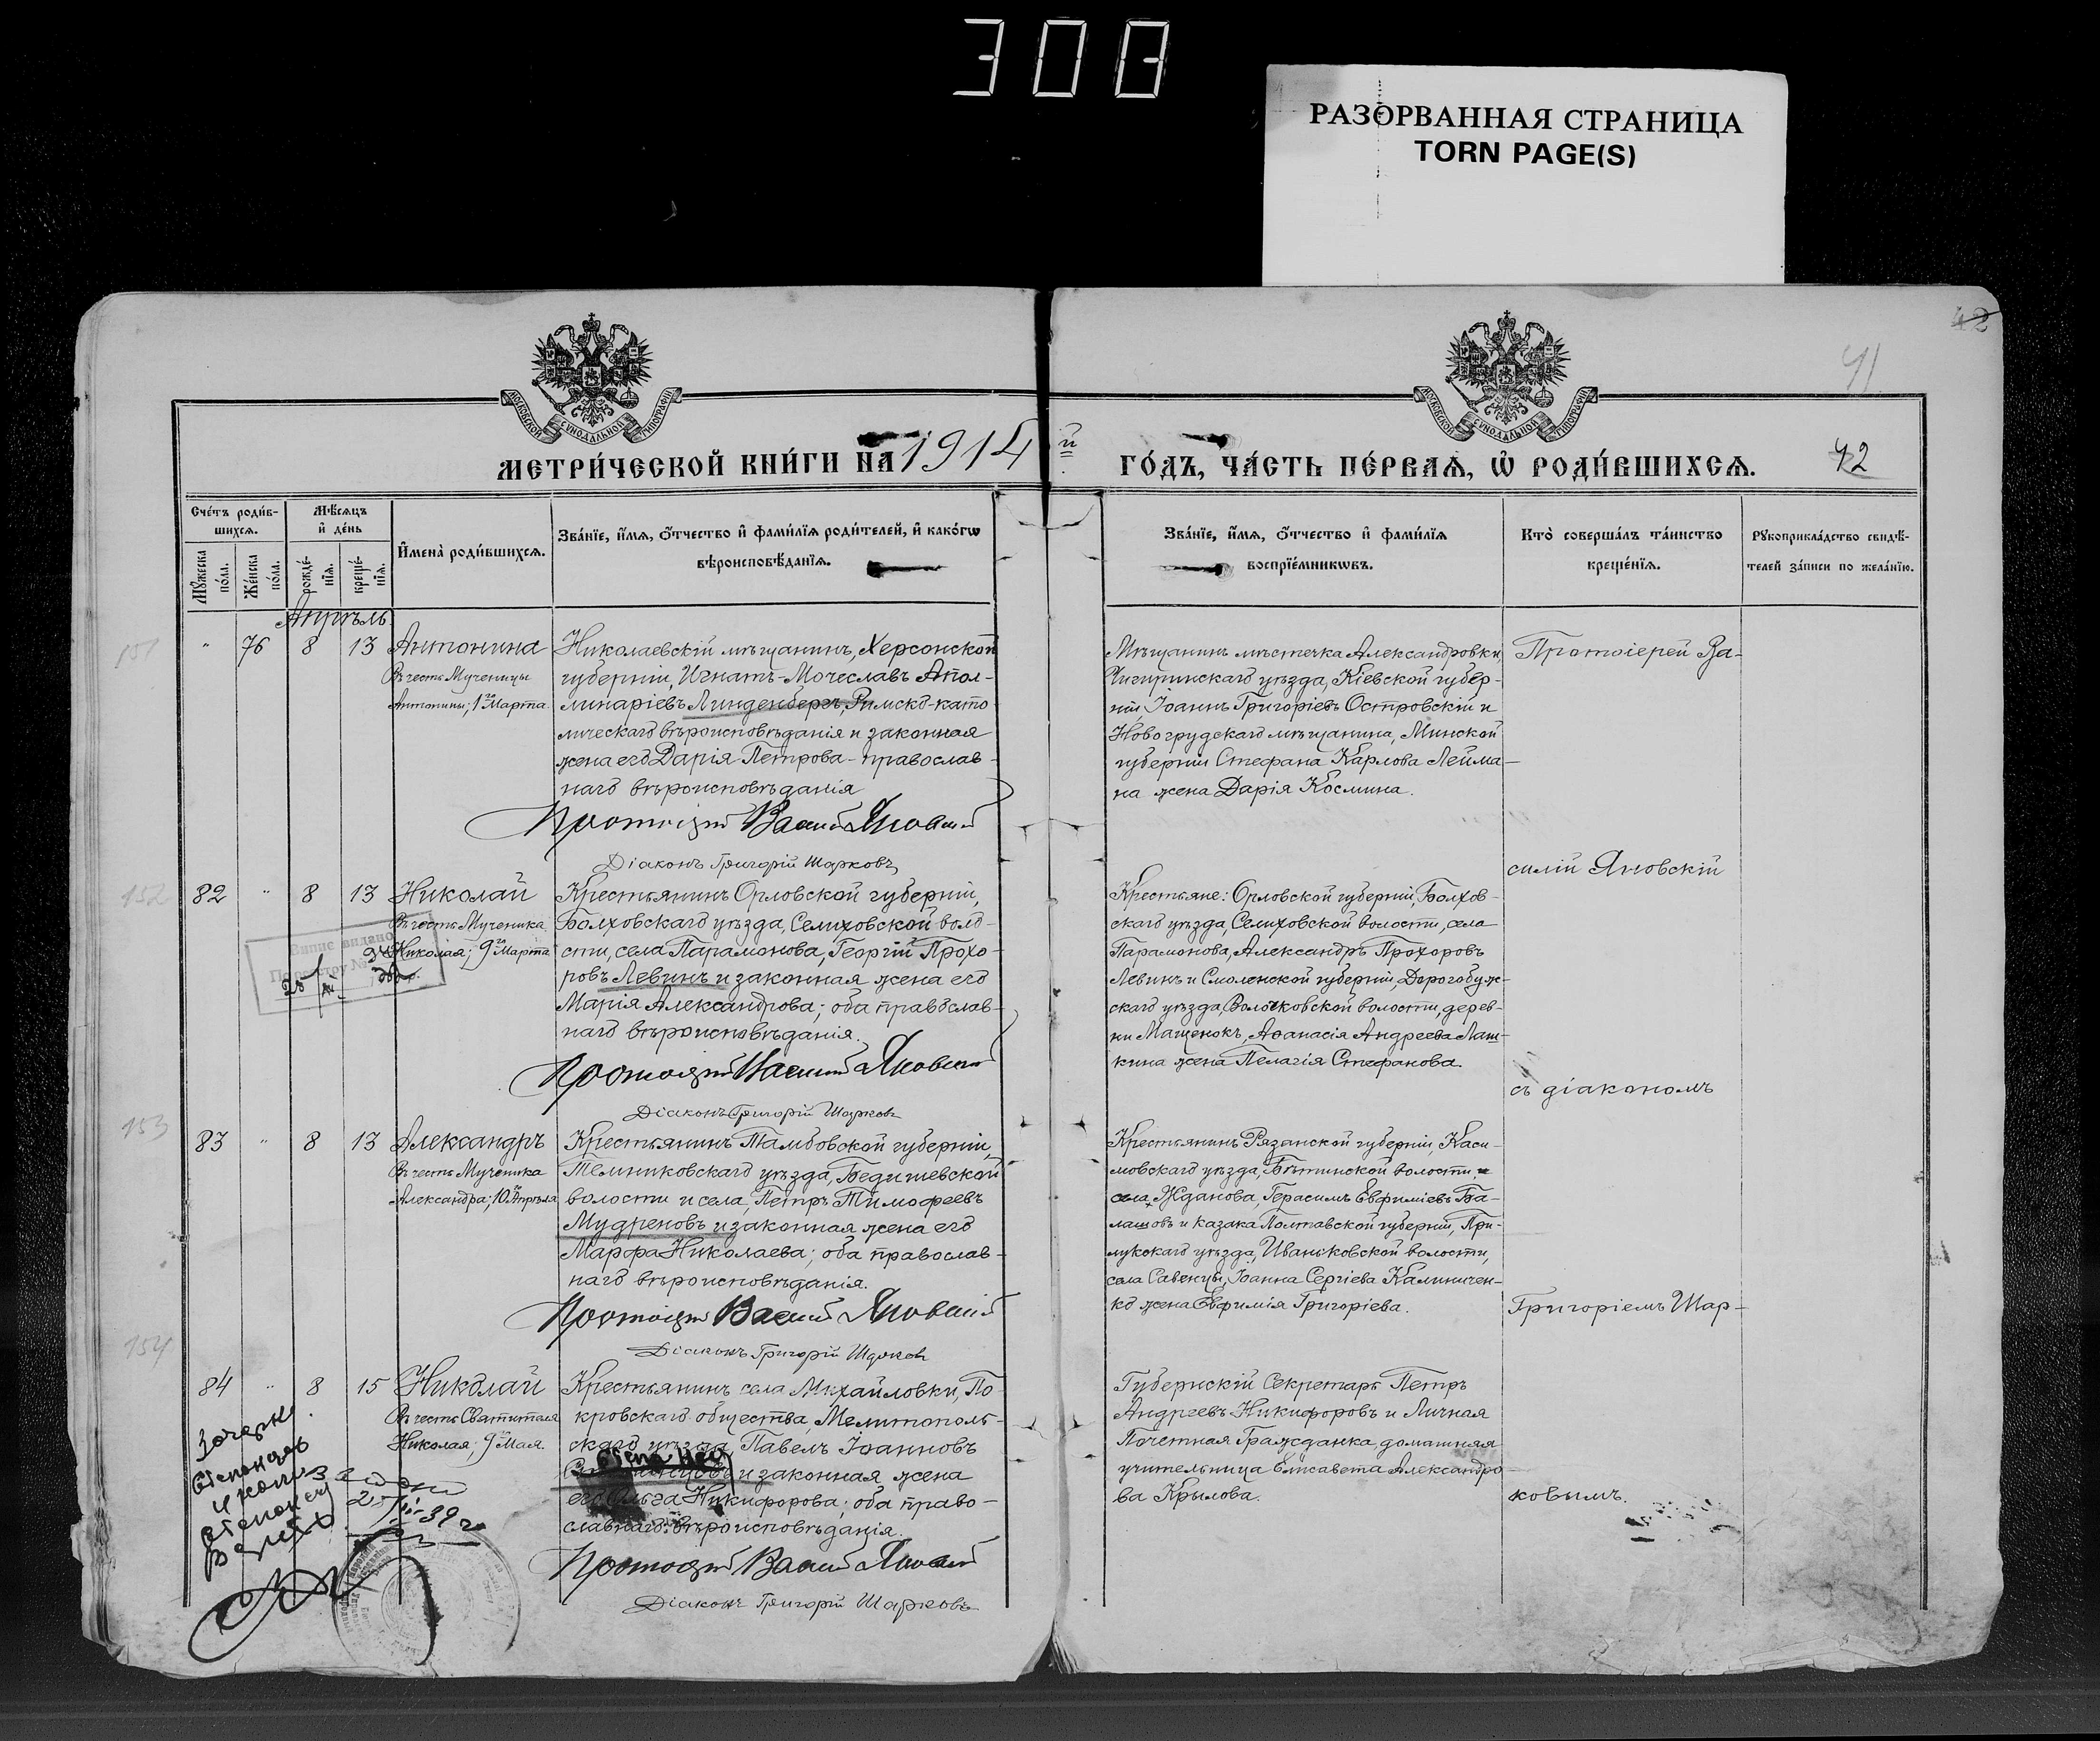 300
РАЗОРВАННАЯ СТРАНИЦА
TORN PAGE(S)
42
41
МОСКОВСКОЙ СѴНОДАЛЬНОЙ ТИПОГРАФІИ
МОСКОВСКОЙ СѴНОДАЛЬНОЙ ТИПОГРАФІИ
МЕТРИ́ЧЕСКОЙ КНИ́ГИ НА 1914 й ГО́ДЪ, ЧА́СТЬ ПЕ́РВАѦ, Ѡ҆ РОДИ́ВШИХСѦ.
42
Сче́тъ роди́в-
шихсѧ.
Мꙋ́жеска по́ла.
Же́нска по́ла.
Мѣ́сѧцъ и҆ де́нь
рожде́-нїѧ.
креще́-нїѧ.
И҆мена̀ роди́вшихсѧ.
Зва́нїе, и҆́мѧ, ѻ҆́тчество и҆ фами́лїѧ роди́телей, и҆ како́гѡ
вѣроисповѣ́данїѧ.
Зва́нїе, и҆́мѧ, ѻ҆́тчество и҆ фами́лїѧ
воспрїе́мникѡвъ.
Кто̀ соверша́лъ та́инство
креще́нїѧ.
Рꙋкоприкла́дство свидѣ́-
телей за́писи по жела́нїю.
Апрѣль
151
" 76 8 13 Антонина
Въ честь Мученицы
Антонины; 1го Марта
Николаевскій мѣщанинъ, Херсонской
губерніи, Игнатъ-Мочеславъ Апол-
линаріевъ Линденбергъ, Римско-като
лическаго вѣроисповѣданія и законная
жена его Дарія Петрова - православ-
наго вѣроисповѣданія
Протоіерей Василій Яновскій
Діаконъ Григорій Шарковъ
Мѣщанинъ мѣстечка Александровки,
Чигиринскаго уѣзда, Кіевской губер-
ніи, Іоаннъ Григоріевъ Островскій и
Новогрудскаго мѣщанина, Минской
губерніи Стефана Карлова Лейма-
на жена Дарія Космина.
Протоіерей Ва-
силій Яновскій
152
82 " 8 13 Николай
Въ честь Мученика
Николая; 9го Марта
Крестьянинъ Орловской губерніи,
Болховскаго уѣзда, Селиховской воло-
сти, села Парамонова, Георгій Прохо-
ровъ Левинъ и законная жена его
Марія Александрова; оба православ-
наго вѣроисповѣданія.
Протоіерей Василій Яновскій
Діаконъ Григорій Шарковъ
Крестьяне: Орловской губерніи, Болхов-
скаго уѣзда, Селиховской волости, села
Парамонова, Александръ Прохоровъ
Левинъ и Смоленской губерніи, Дорогобуж-
скаго уѣзда, Волочковской волости, дерев-
ни Мащенокъ, Аѳанасія Андреева Лаш-
кина жена Пелагія Стефанова.
съ діакономъ
153
83 " 8 13 Александръ
Въ честь Мученика
Александра; 10го Апрѣля
Крестьянинъ Тамбовской губерніи,
Темниковскаго уѣзда, Бедишевской
волости и села, Петръ Тимофеевъ
Мудреновъ и законная жена его
Марфа Николаева; оба православ-
наго вѣроисповѣданія.
Протоіерей Василій Яновскій
Діаконъ Григорій Шарковъ
Крестьянинъ Рязанской губерніи, Каси-
мовскаго уѣзда, Бѣтинской волости, и
села Жданова, Герасимъ Евфиміевъ Ба-
лашовъ и казака Полтавской губерніи, При-
лукскаго уѣзда, Иваньковской волости,
села Савенцы, Іоанна Сергіева Калиничен-
ко жена Евфимія Григоріева.
Григоріемъ Шар-
154
84 " 8 15 Николай
Въ честь Святителя
Николая; 9го Мая.
Крестьянинъ села Михайловки, По-
кровскаго общества, Мелитополь-
скаго уѣзда, Павелъ Іоанновъ
и законная жена
его Ольга Никифорова; оба право-
славнаго вѣроисповѣданія.
Протоіерей Василій Яновскій
Діаконъ Григорій Шарковъ
Губернскій Секретарь Петръ
Андреевъ Никифоровъ и Личная
Почетная Гражданка, домашняя
учительница Елисавета Александро-
ва Крылова.
ковымъ.